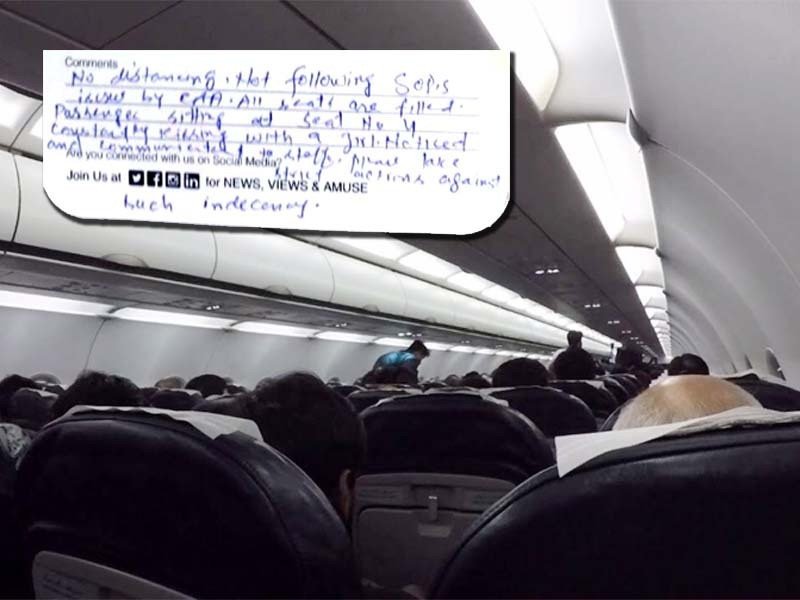 Comments
No distancing. Not following SOP,s
issued by CAA. All seats are filled.
Passenger sitting at Seat No 4
Constantly Kissing with a girl. Noticed
and communicated to staff, please take
Are you connected with us on Social Media?
strict actions against
Join Us at for NEWS, VIEWS & AMUSE
such indecency.